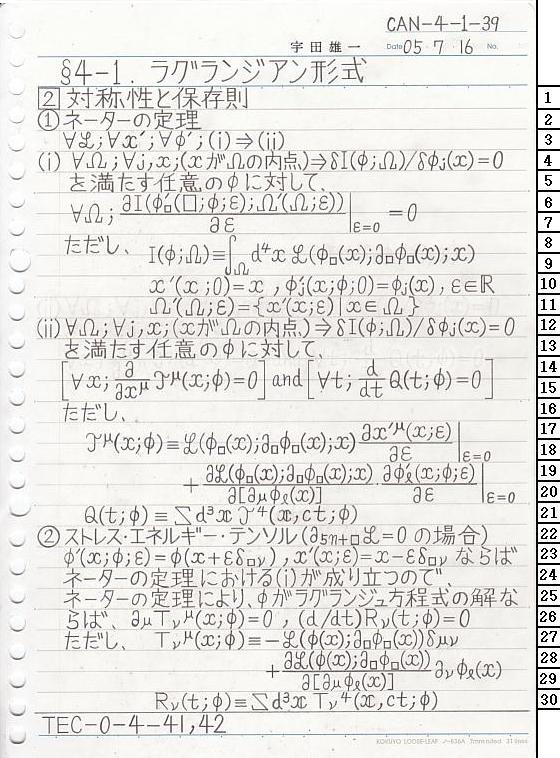 CAN-4-1-39
宇田雄一 Date 05 7 16 No.
§4-1. ラグランジアン形式
[2] 対称性と保存則
① ネーターの定理
∀ℒ;∀x′;∀φ′;(i)⇒(ii)
(i) ∀Ω;∀j,x;(xがΩの内点)⇒δI(φ;Ω)/δφj(x)=0
を満たす任意のφに対して、
∀Ω; ∂I(φ′□(□;φ;ε);Ω′(Ω;ε))/∂ε |ε=0 =0
ただし、 I(φ;Ω)≡∫Ω d⁴x ℒ(φ□(x);∂□φ□(x);x)
x′(x;0)=x , φ′j(x;φ;0)=φj(x), ε∈ℝ
Ω′(Ω;ε)={x′(x;ε)|x∈Ω}
(ii) ∀Ω;∀j,x;(xがΩの内点)⇒δI(φ;Ω)/δφj(x)=0
を満たす任意のφに対して、
[∀x; ∂/∂xμ 𝒯μ(x;φ)=0] and [∀t; d/dt Q(t;φ)=0]
ただし、
𝒯μ(x;φ)≡ℒ(φ□(x);∂□φ□(x);x) ∂x′μ(x;ε)/∂ε |ε=0
+ ∂ℒ(φ□(x);∂□φ□(x);x)/∂[∂μφℓ(x)] · ∂φ′ℓ(x;φ;ε)/∂ε |ε=0
Q(t;φ)≡∑d³x 𝒯⁴(x,ct;φ)
② ストレス・エネルギー・テンソル(∂5n+□ℒ=0 の場合)
φ′(x;φ;ε)=φ(x+εδ□ν), x′(x;ε)=x−εδ□ν ならば
ネーターの定理における(i)が成り立つので、
ネーターの定理により、φがラグランジュ方程式の解な
らば、∂μTνμ(x;φ)=0 , (d/dt)Rν(t;φ)=0
ただし、 Tνμ(x;φ)≡−ℒ(φ(x);∂□φ□(x))δμν
+ ∂ℒ(φ(x);∂□φ□(x))/∂[∂μφℓ(x)] ∂νφℓ(x)
Rν(t;φ)≡∑d³x Tν⁴(x,ct;φ)
TEC-0-4-41,42
KOKUYO LOOSE-LEAF ノ-836A 7mm ruled 31 lines
1
2
3
4
5
6
7
8
9
10
11
12
13
14
15
16
17
18
19
20
21
22
23
24
25
26
27
28
29
30